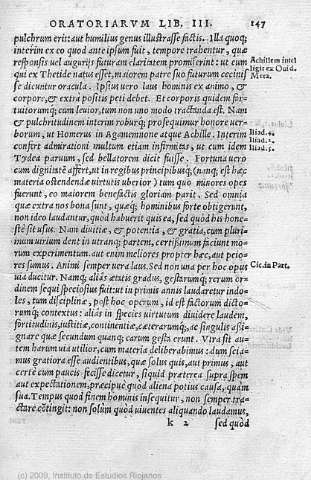 ORATORIARVM LIB. III. 147
pulchrum erit: aut humilius genus illustrasse factis. Illa quoq;
interim ex eo quod ante ipsum fuit, tempore trahentur, quæ
responsis vel augurijs futuram claritatem promiserint: ut eum
qui ex Thetide natus esset, maiorem patre suo futurum cecinis
se dicuntur oracula. Ipsius vero laus hominis ex animo, &
corpore, & extra positis peti debet. Et corporis quidem for-
tuitorumq; cum leuior, tum non uno modo tractanda est. Nam
& pulchritudinem interim roburq; prosequimur honore ver-
borum, ut Homerus in Agamemnone atque Achille. Interim
confert admirationi multum etiam infirmitas, ut cum idem
Tydea paruum, sed bellatorem dicit fuisse. Fortuna vero
cum dignitatē affert, ut in regibus principibusq; (namq; est hæc
materia ostendendæ virtutis uberior) tum quo minores opes
fuerunt, eo maiorem benefactis gloriam parit. Sed omnia
quæ extra nos bona sunt, quæq; hominibus forte obtigerunt,
non ideo laudantur, quod habuerit quis ea, sed quòd his hone-
ste sit usus. Nam diuitiæ, & potentia, & gratia, cum pluri-
mum virium dent in utranq; partem, certissimum faciunt mo-
rum experimentum. aut enim meliores propter hæc, aut peio-
res sumus. Animi semper vera laus. Sed non una per hoc opus
via ducitur. Namq; aliàs ætatis gradus, gestarumq; rerum or-
dinem sequi speciosius fuit: ut in primis annis laudaretur indo-
les, tum disciplinæ, post hoc operum, id est factorum dicto-
rumq; contextus: aliàs in species virtutum diuidere laudem,
fortitudinis, iustitiæ, continentiæ, cæterarumq; ac singulis assi-
gnare quæ secundum quanq; earum gesta erunt. Vtra sit au-
tem harum via utilior, cum materia deliberabimus: dum scia-
mus gratiora esse audientibus, quæ solus quis, aut primus, aut
certè cum paucis fecisse dicetur, siquid præterea supra spem
aut expectationem, præcipuè quod aliena potius causa, quàm
sua. Tempus quod finem hominis insequitur, non semper tra-
ctare cōtingit: non solùm quòd viuentes aliquando laudamus,
k 2 sed quòd
Achillem intel
ligit ex Ouid.
Meta.
Iliad. 4.
Iliad. 2.
Iliad. 5.
Cic. in Part.
(c) 2009, Instituto de Estudios Riojanos